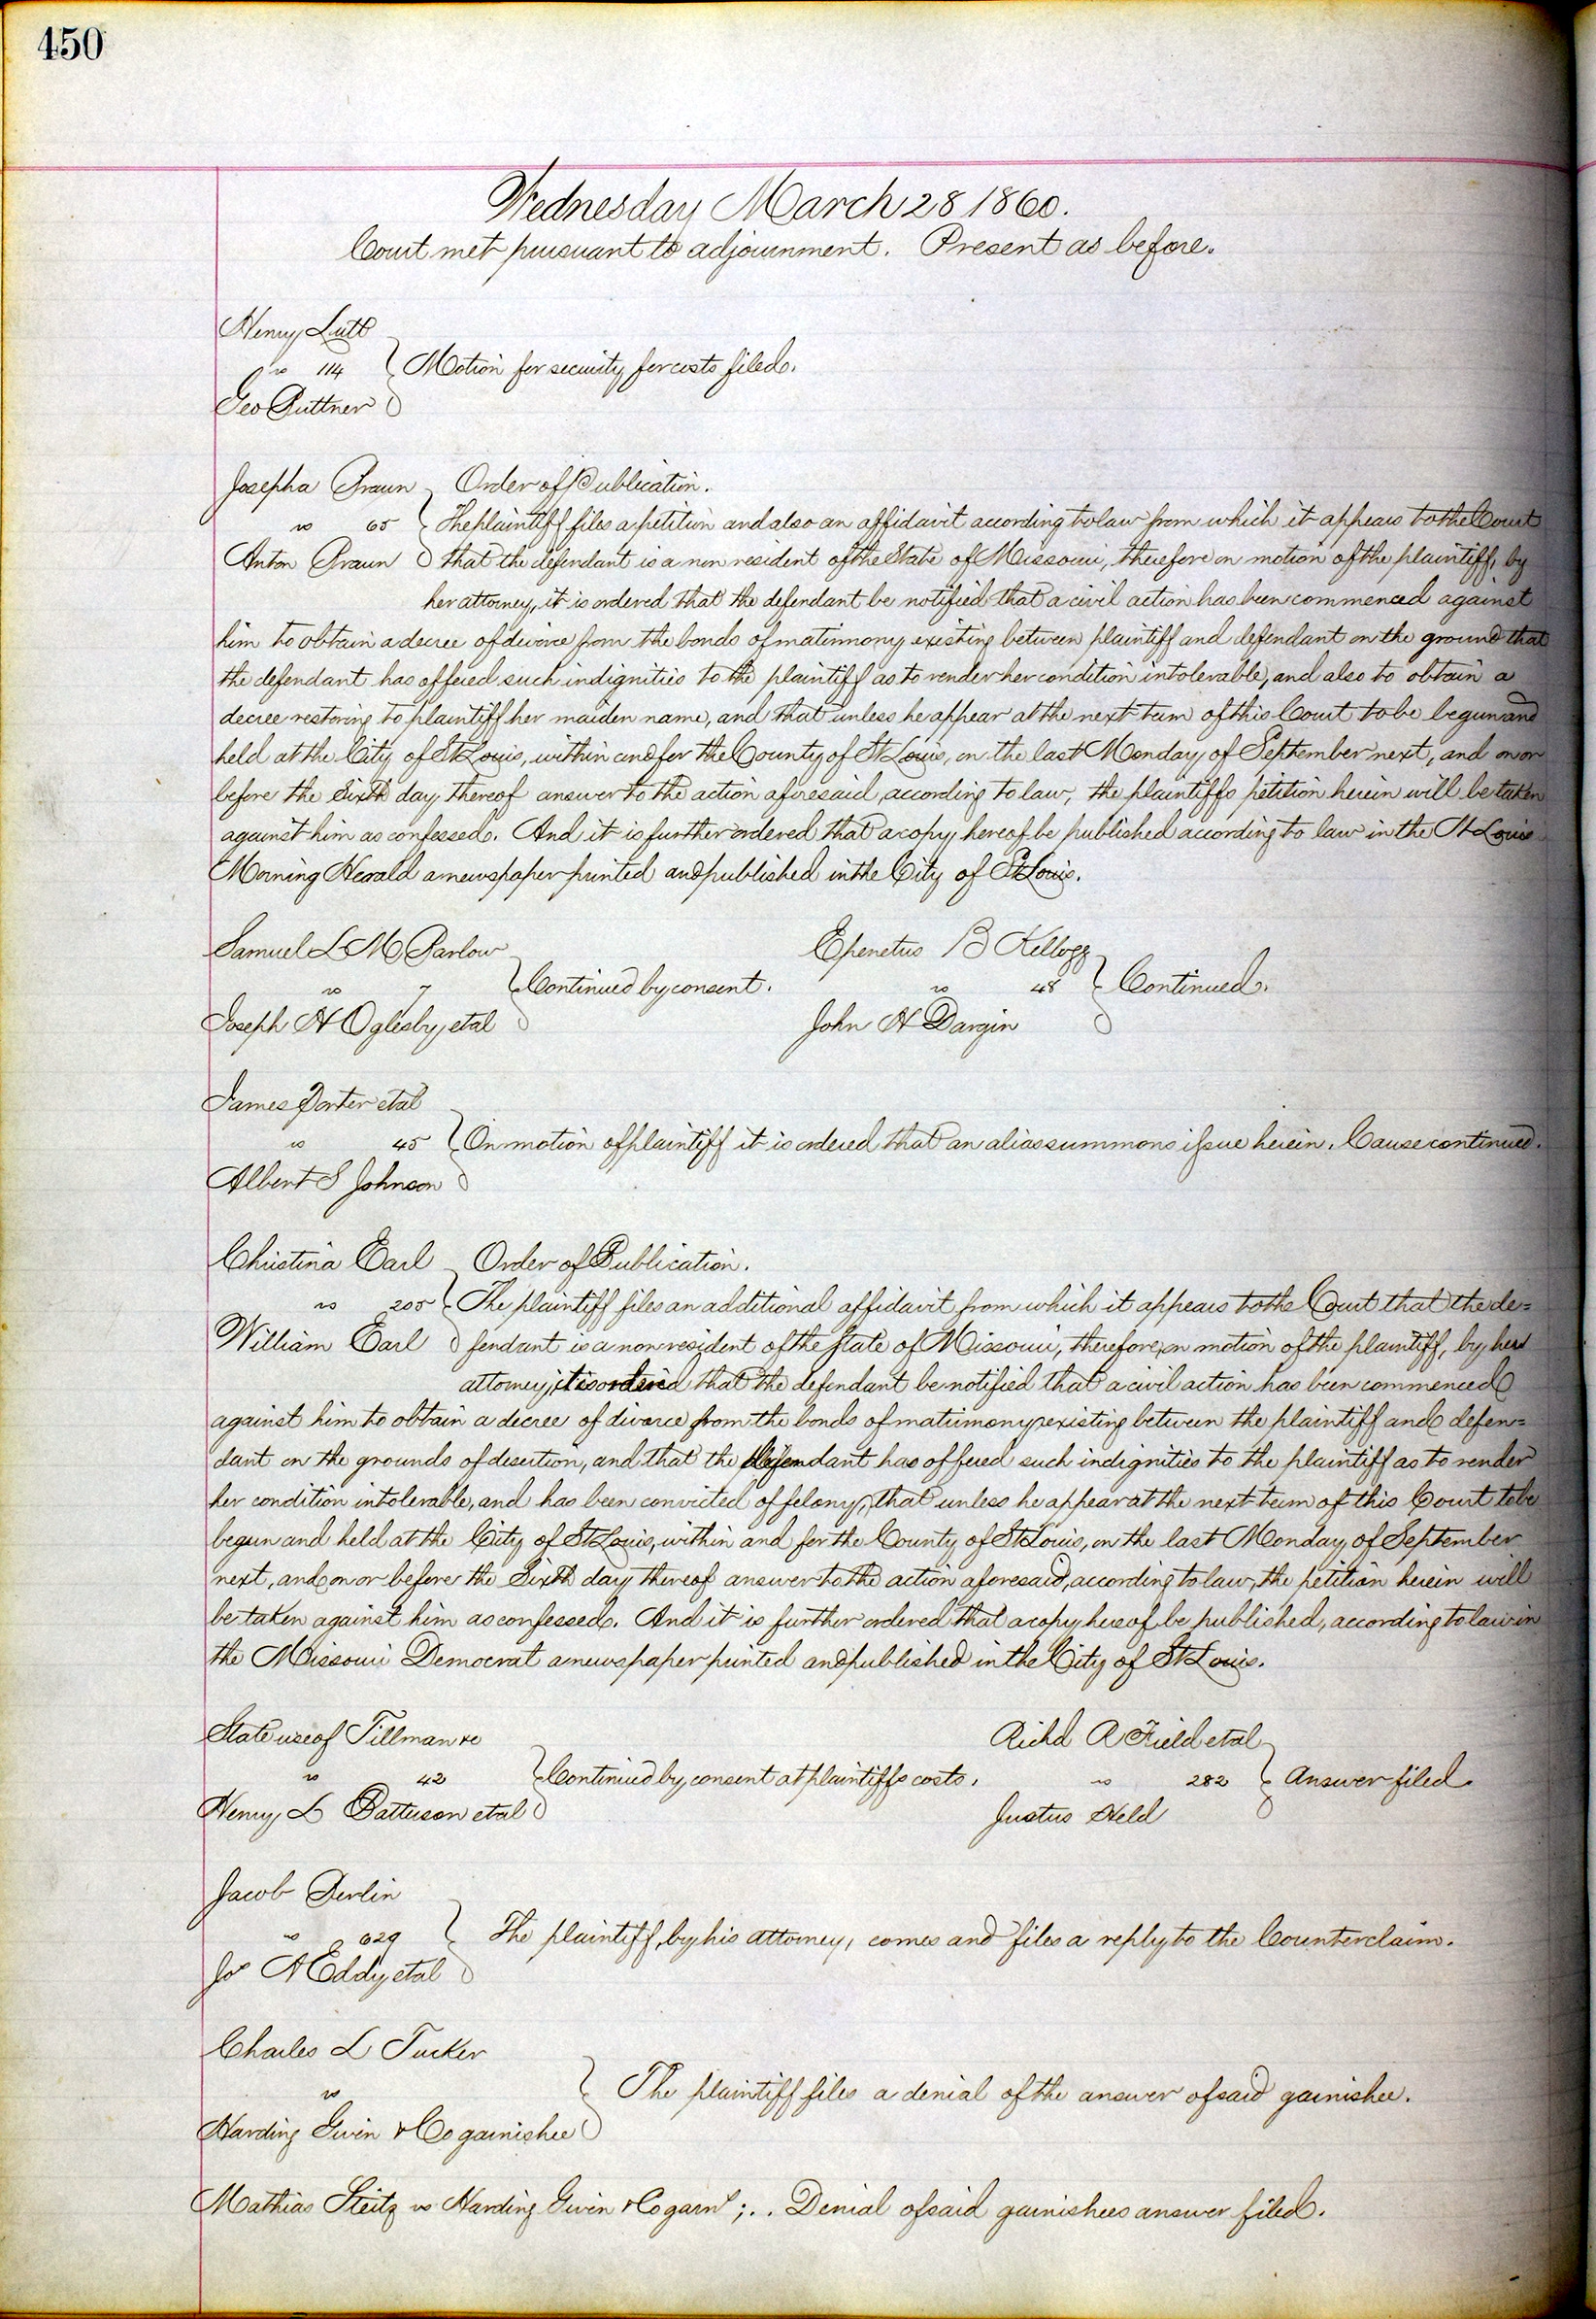 450
Wednesday March 28 1860.
Court met pursuant to adjournment. Present as before.
Henry Lutt
vs 114 Motion for security for costs filed.
Geo Buttner
Josepha Braun Order of Publication.
vs 65 The plaintiff files a petition and also an affidavit according to law from which it appears to the Court
Anton Braun that the defendant is a non resident of the State of Missouri, therefore on motion of the plaintiff, by
her attorney, it is ordered that the defendant be notified that a civil action has been commenced against
him to obtain a decree of divorce from the bonds of matrimony existing between plaintiff and defendant on the ground that
the defendant has offered such indignities to the plaintiff as to render her condition intolerable, and also to obtain a
decree restoring to plaintiff her maiden name, and that unless he appear at the next term of this Court to be begun and
held at the City of St Louis, within and for the County of St Louis, on the last Monday of September next, and on or
before the Sixth day thereof answer to the action aforesaid, according to law, the plaintiffs petition herein will be taken
against him as confessed. And it is further ordered that a copy hereof be published according to law in the St Louis
Morning Herald a newspaper printed and published in the City of St Louis.
Samuel L M Barlow
vs 7 Continued by consent.
Joseph H Oglesby, et al
Epenetus B Kellogg
vs 48 Continued.
John H Dargin
James Porter et al
vs 45 On motion of plaintiff it is ordered that an alias summons issue herein. Cause continued.
Albert S Johnson
Christina Earl Order of Publication.
vs 205 The plaintiff files an additional affidavit from which it appears to the Court that the de=
William Earl fendant is a non resident of the State of Missouri, therefore, on motion of the plaintiff, by her
attorney, it is ordered that the defendant be notified that a civil action has been commenced
against him to obtain a decree of divorce from the bonds of matrimony existing between the plaintiff and defen=
dant on the grounds of desertion, and that the defendant has offered such indignities to the plaintiff as to render
her condition intolerable, and has been convicted of felony, that unless he appear at the next term of this Court to be
begun and held at the City of St Louis, within and for the County of St Louis, on the last Monday of September
next, and on or before the Sixth day thereof answer to the action aforesaid, according to law, the petition herein will
be taken against him as confessed. And it is further ordered that a copy hereof be published, according to law in
the Missouri Democrat a newspaper printed and published in the City of St Louis.
State use of Tillman &c
vs 42 Continued by consent at plaintiffs costs.
Henry L Patterson et al
Richd R Field et al
vs 282 Answer filed.
Justus Held
Jacob Berlin
vs 629 The plaintiff, by his attorney, comes and files a reply to the Counterclaim.
Jos A Eddy et al
Charles L Tucker
vs The plaintiff files a denial of the answer of said garnishee.
Harding Givin & Co garnishee
Mathias Steitz vs Harding Givin & Co garnt ; . . Denial of said garnishees answer filed.